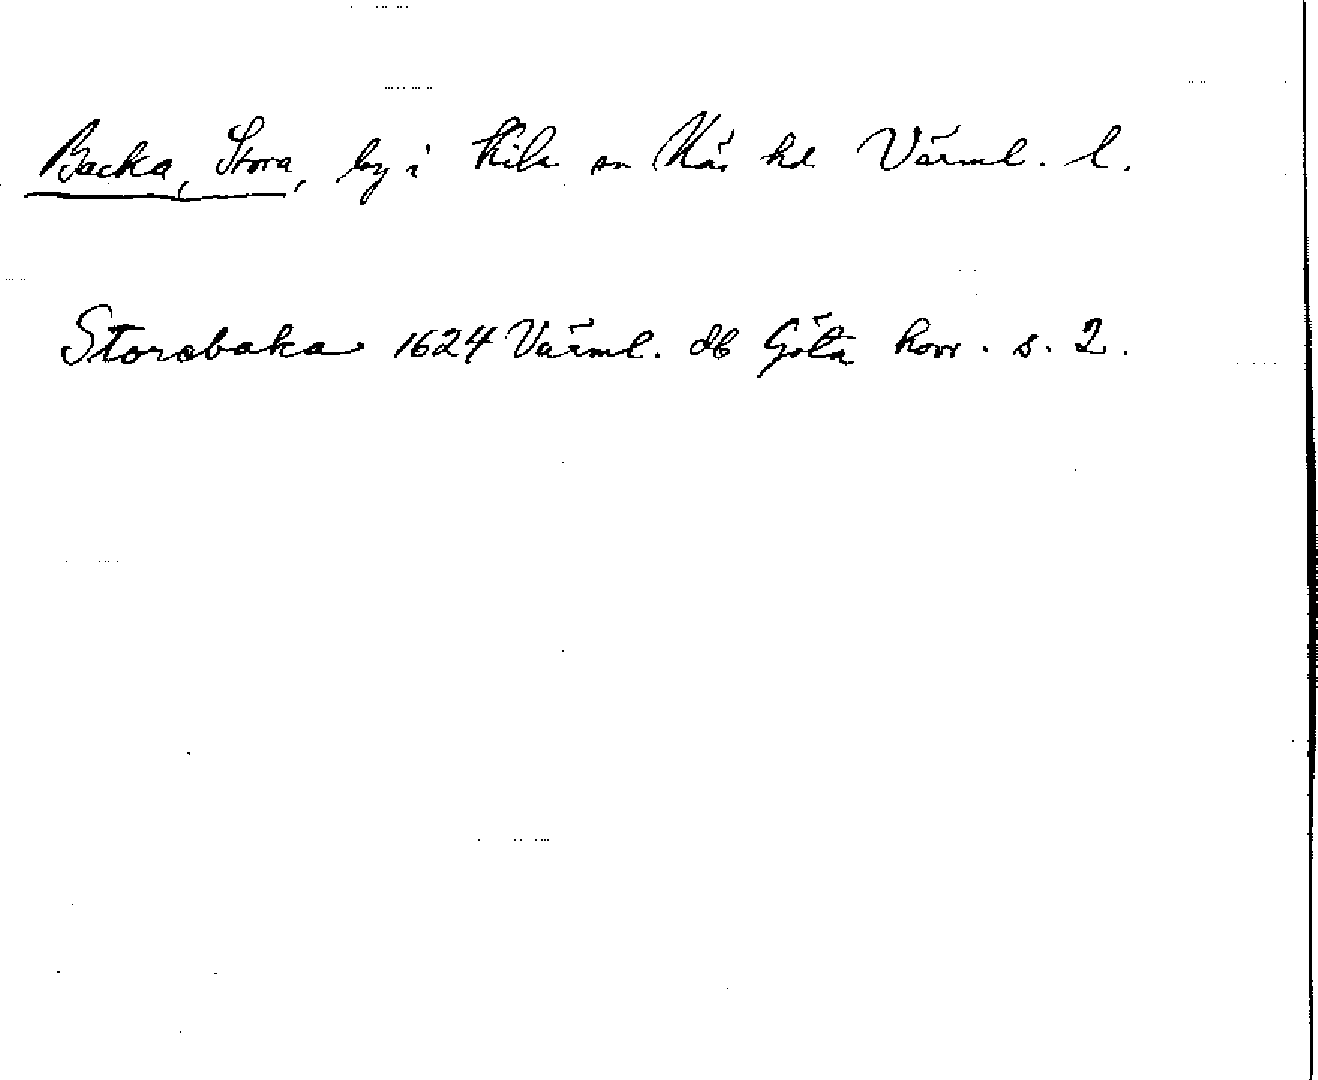 Backa, Stora, by i Kila sn Näs hd Värml. l.
Storebaka 1624 Värml. db Göta hovr. s. 2.